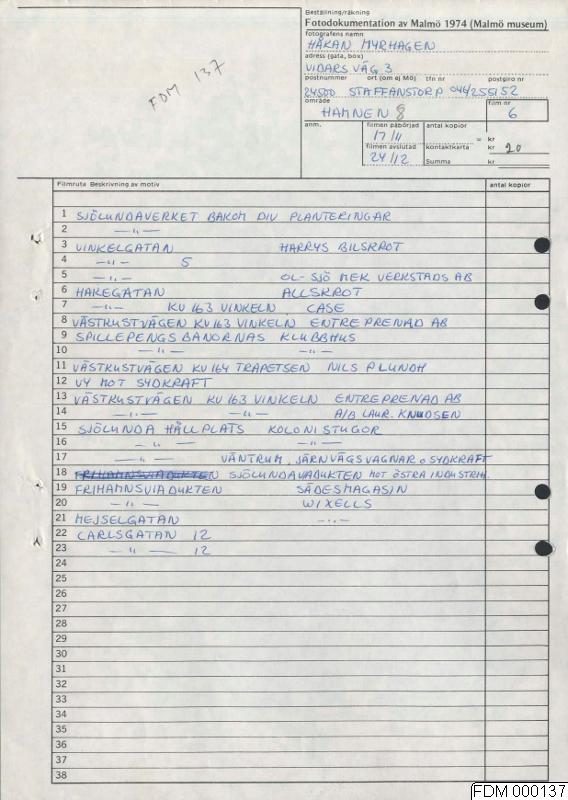 Beställning/räkning
Fotodokumentation av Malmö 1974 (Malmö museum)
fotografens namn
HÅKAN MYRHAGEN
adress (gata, box)
VIDARS VÄG 3
postnummer ort (om ej Mö) tfn nr postgiro nr
24500 STAFFANSTORP 046/255152
område film nr
HAMNEN 8 6
anm. filmen påbörjad antal kopior
17/11 = kr
filmen avslutad kontaktkarta kr 20
24/12 Summa kr
FDM 137
Filmruta Beskrivning av motiv antal kopior
1 SJÖLUNDAVERKET BAKOM DIV PLANTERINGAR
2 —〃—
3 VINKELGATAN HARRYS BILSKROT
4 —〃— 5
5 —〃— OL-SJÖ MEK VERKSTADS AB
6 HAKEGATAN ALLSKROT
7 —〃— KV 163 VINKELN CASE
8 VÄSTKUSTVÄGEN KV 163 VINKELN ENTREPRENAD AB
9 SPILLEPENGSBANORNAS KLUBBHUS
10 —〃— —〃—
11 VÄSTKUSTVÄGEN KV 164 TRAPETSEN NILS P LUNDH
12 VY MOT SYDKRAFT
13 VÄSTKUSTVÄGEN KV 163 VINKELN ENTREPRENAD AB
14 —〃— —〃— A/B LAUR. KNUDSEN
15 SJÖLUNDA HÅLLPLATS KOLONISTUGOR
16 —〃— —〃—
17 —〃— VÄNTRUM, JÄRNVÄGSVAGNAR o SYDKRAFT
18 FRIHAMNSVIADUKTEN SJÖLUNDAVIADUKTEN MOT ÖSTRA INDUSTRIN
19 FRIHAMNSVIADUKTEN SÄDESMAGASIN
20 —〃— WIXELLS
21 MEJSELGATAN —〃—
22 CARLSGATAN 12
23 —〃— 12
24
25
26
27
28
29
30
31
32
33
34
35
36
37
38
FDM 000137